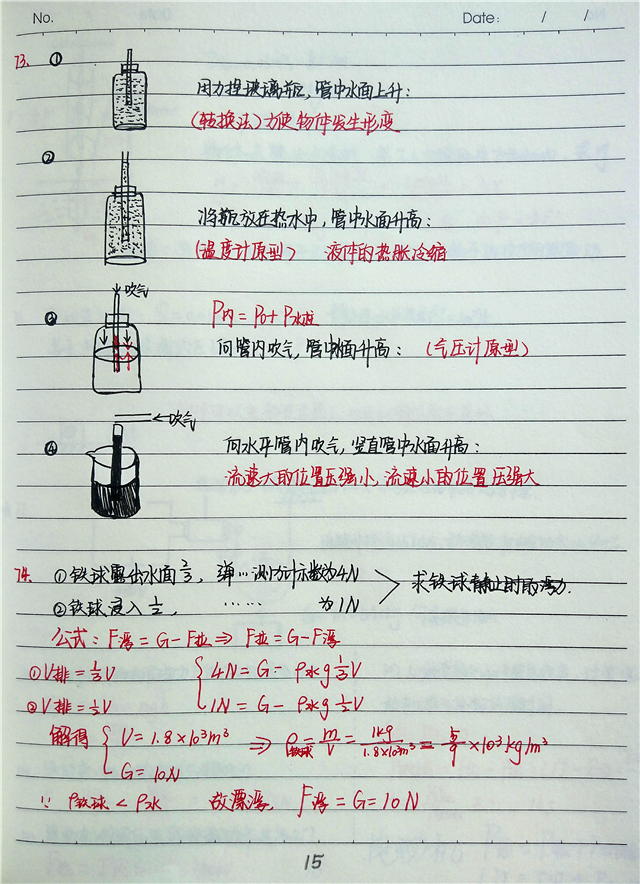 No. Date: / /
73. ①
用力捏玻璃瓶，管中水面上升：
(转换法)力使物体发生形变
②
将瓶放在热水中，管中水面升高：
(温度计原型) 液体的热胀冷缩
↓吹气
③ P内=P0+P水柱
向管内吹气，管中水面升高：(气压计原型)
←吹气
④ 向水平管内吹气，竖直管中水面升高：
流速大的位置压强小，流速小的位置压强大
74. ①铁球露出水面2/3，弹…测力计示数为4N
②铁球浸入1/2， …… 为1N
求铁球静止时的浮力.
公式：F浮=G-F拉⇒F拉=G-F浮
①V排=1/3V 4N=G-ρ水g1/3V
②V排=1/2V 1N=G-ρ水g1/2V
解得 V=1.8×10³m³ ⇒ ρ铁球=m/V=1kg/1.8×10³m³=5/9×10³kg/m³
G=10N
∵ρ铁球<ρ水 故漂浮，F浮=G=10N
15